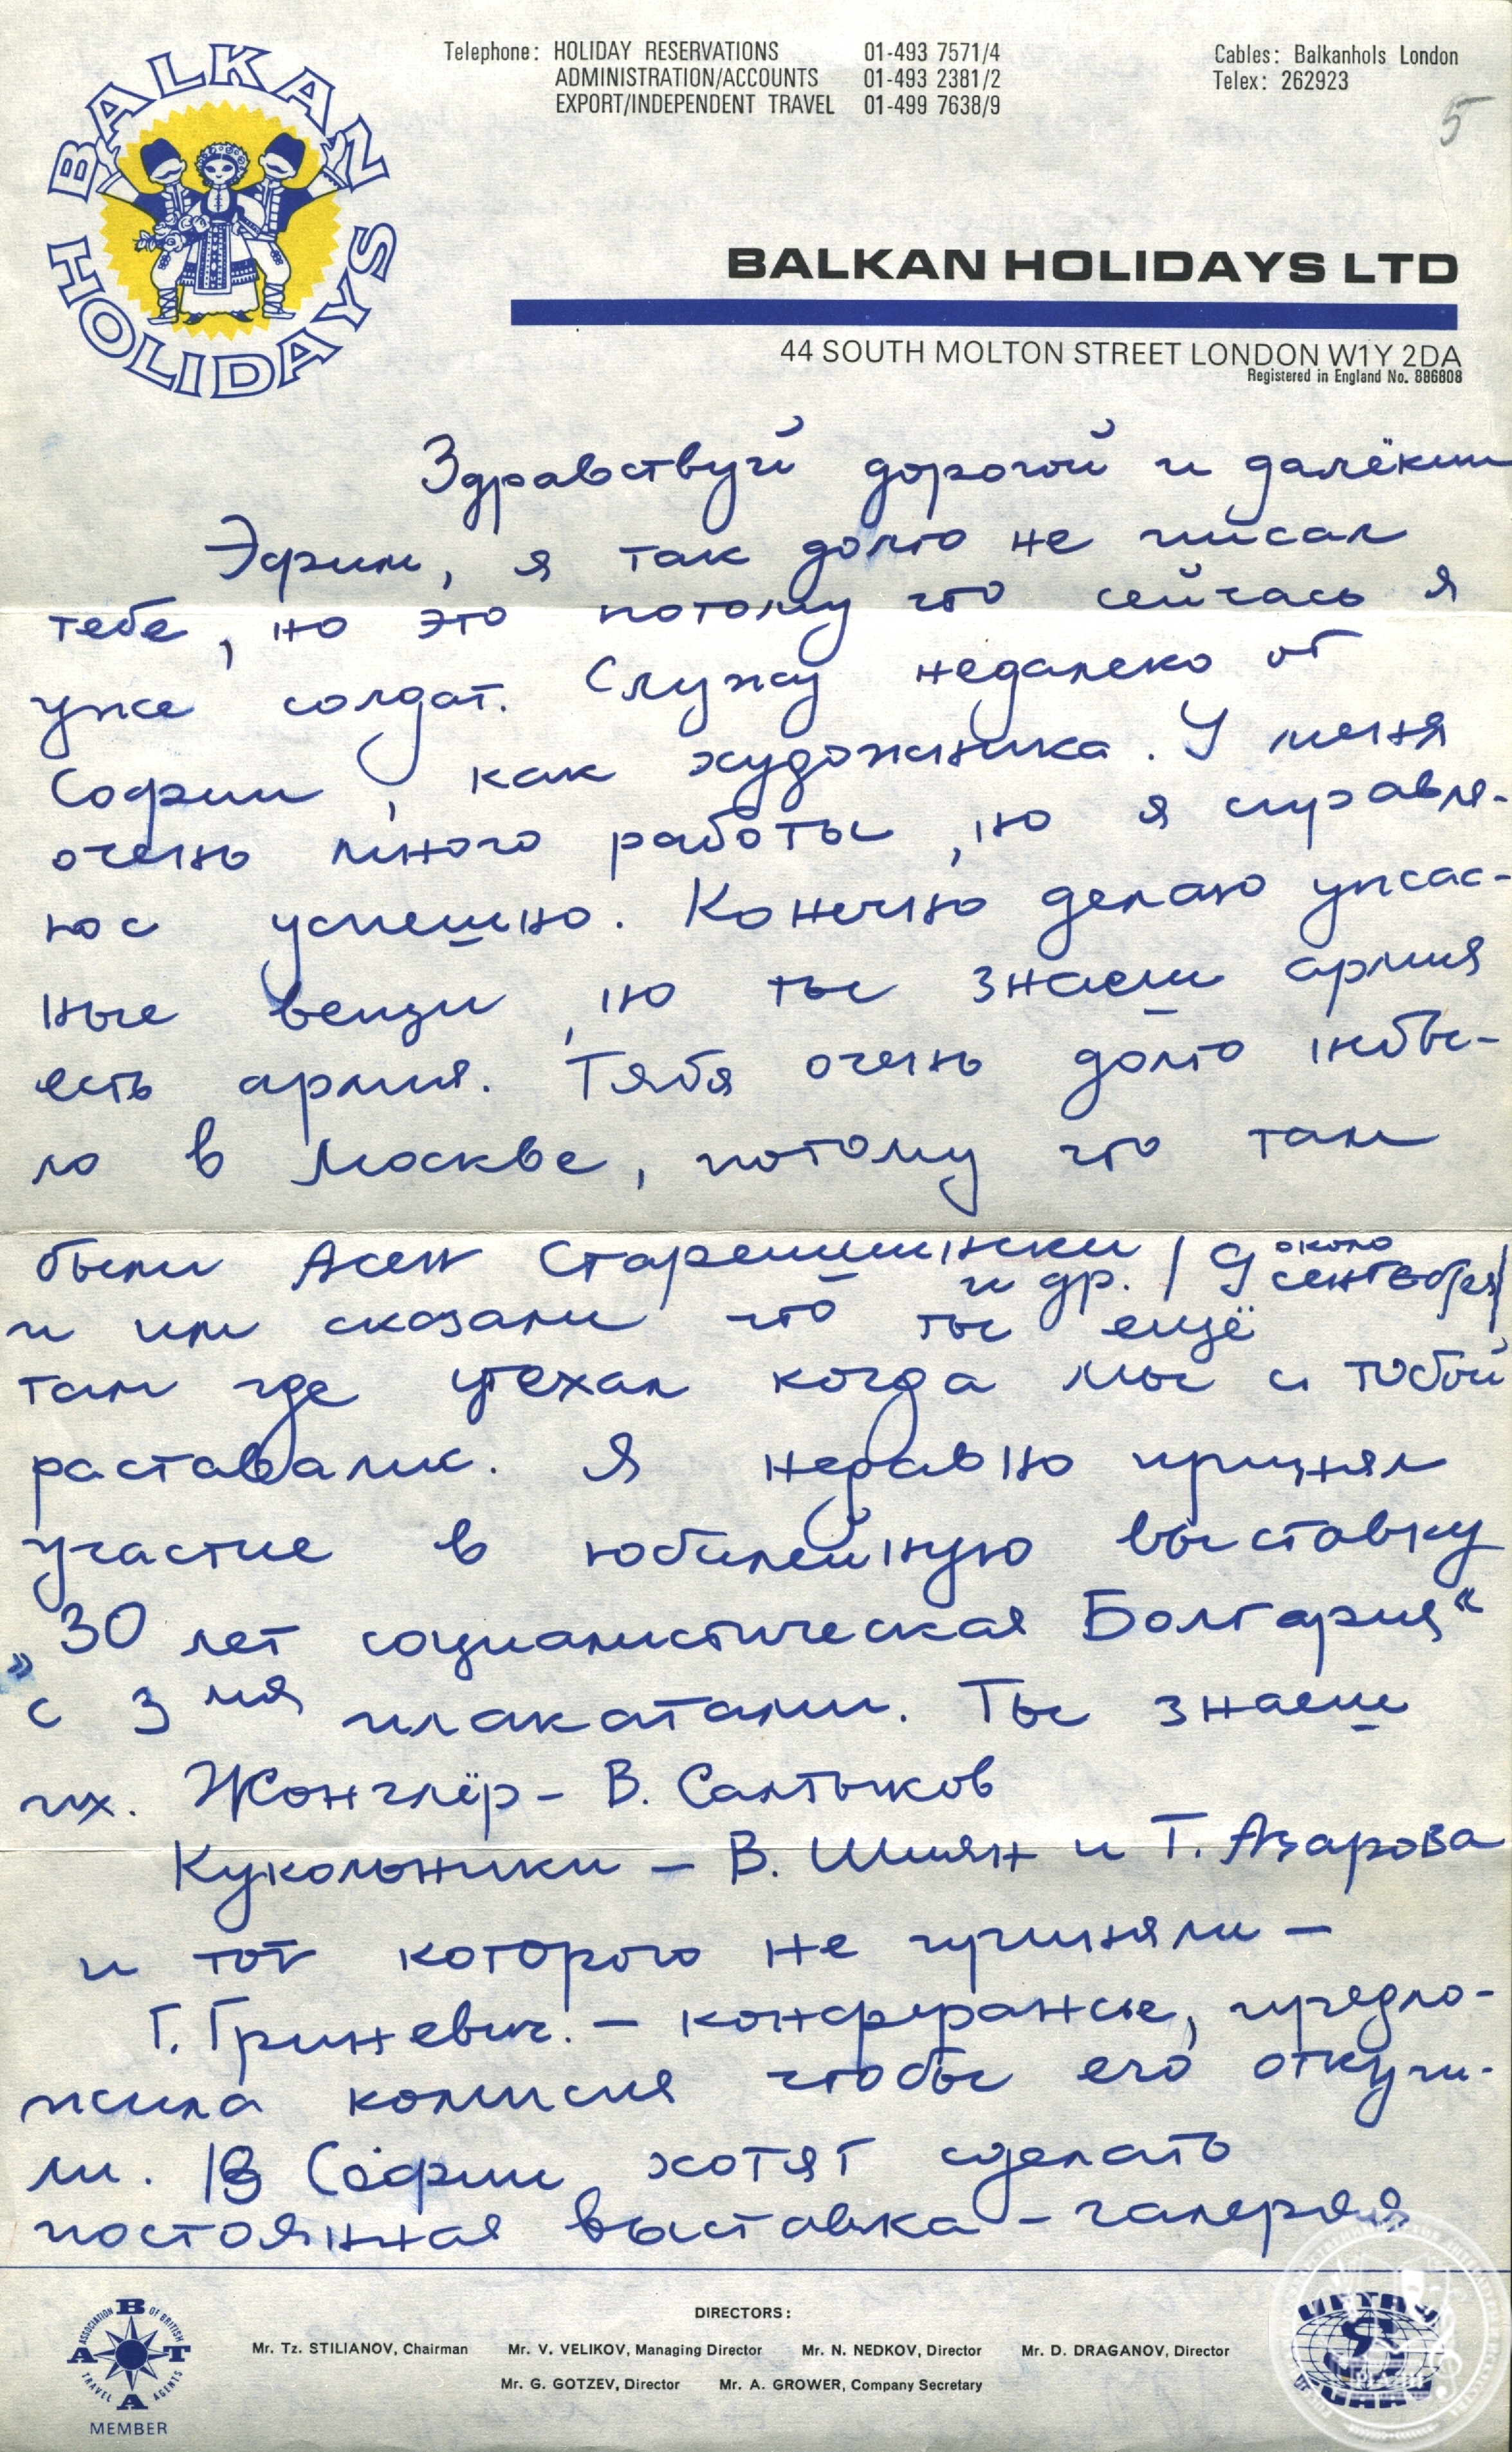 BALKAN HOLIDAYS
Telephone: HOLIDAY RESERVATIONS 01-493 7571/4
ADMINISTRATION/ACCOUNTS 01-493 2381/2
EXPORT/INDEPENDENT TRAVEL 01-499 7638/9
Cables: Balkanhols London
Telex: 262923
5
BALKAN HOLIDAYS LTD
44 SOUTH MOLTON STREET LONDON W1Y 2DA
Registered in England No. 886808
Здравствуй дорогой и далёкий
Эфим, я так долго не писал
тебе, но это потому что сейчась я
уже солдат. Служу недалеко от
Софии, как художника. У меня
очень много работы, но я справля-
юс успешно. Конечно делаю ужас-
ные вещи, но ты знаеш армия
есть армия. Тябя очень долго небы-
ло в Москве, потому что там
были Асен Старейшински и др. / около 9 сентебря/
и им сказали что ты ещё
там где уехал когда мы с тобой
раставалис. Я недавно принял
участие в юбилейную выставку
„30 лет социалистическая Болгария“
с 3мя плакатами. Ты знаеш
их. Жонглёр - В. Салтыков
Кукольники - В. Шиян и Т. Азарова
и тот которого не приняли -
Г. Гриневич. - конферансье, предло-
жила комисия чтобы его откупи-
ли. В Софии хотят сделать
постоянная выставка - галерея
ASSOCIATION OF BRITISH TRAVEL AGENTS
ABTA
MEMBER
DIRECTORS:
Mr. Tz. STILIANOV, Chairman Mr. V. VELIKOV, Managing Director Mr. N. NEDKOV, Director Mr. D. DRAGANOV, Director
Mr. G. GOTZEV, Director Mr. A. GROWER, Company Secretary